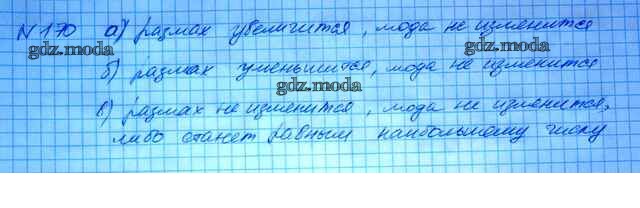 N 170 а) размах увеличится, мода не изменится
gdz.moda gdz.moda
б) размах уменьшится, мода не изменится
gdz.moda gdz.moda
в) размах не изменится, мода не изменится,
либо станет равным наибольшему числу